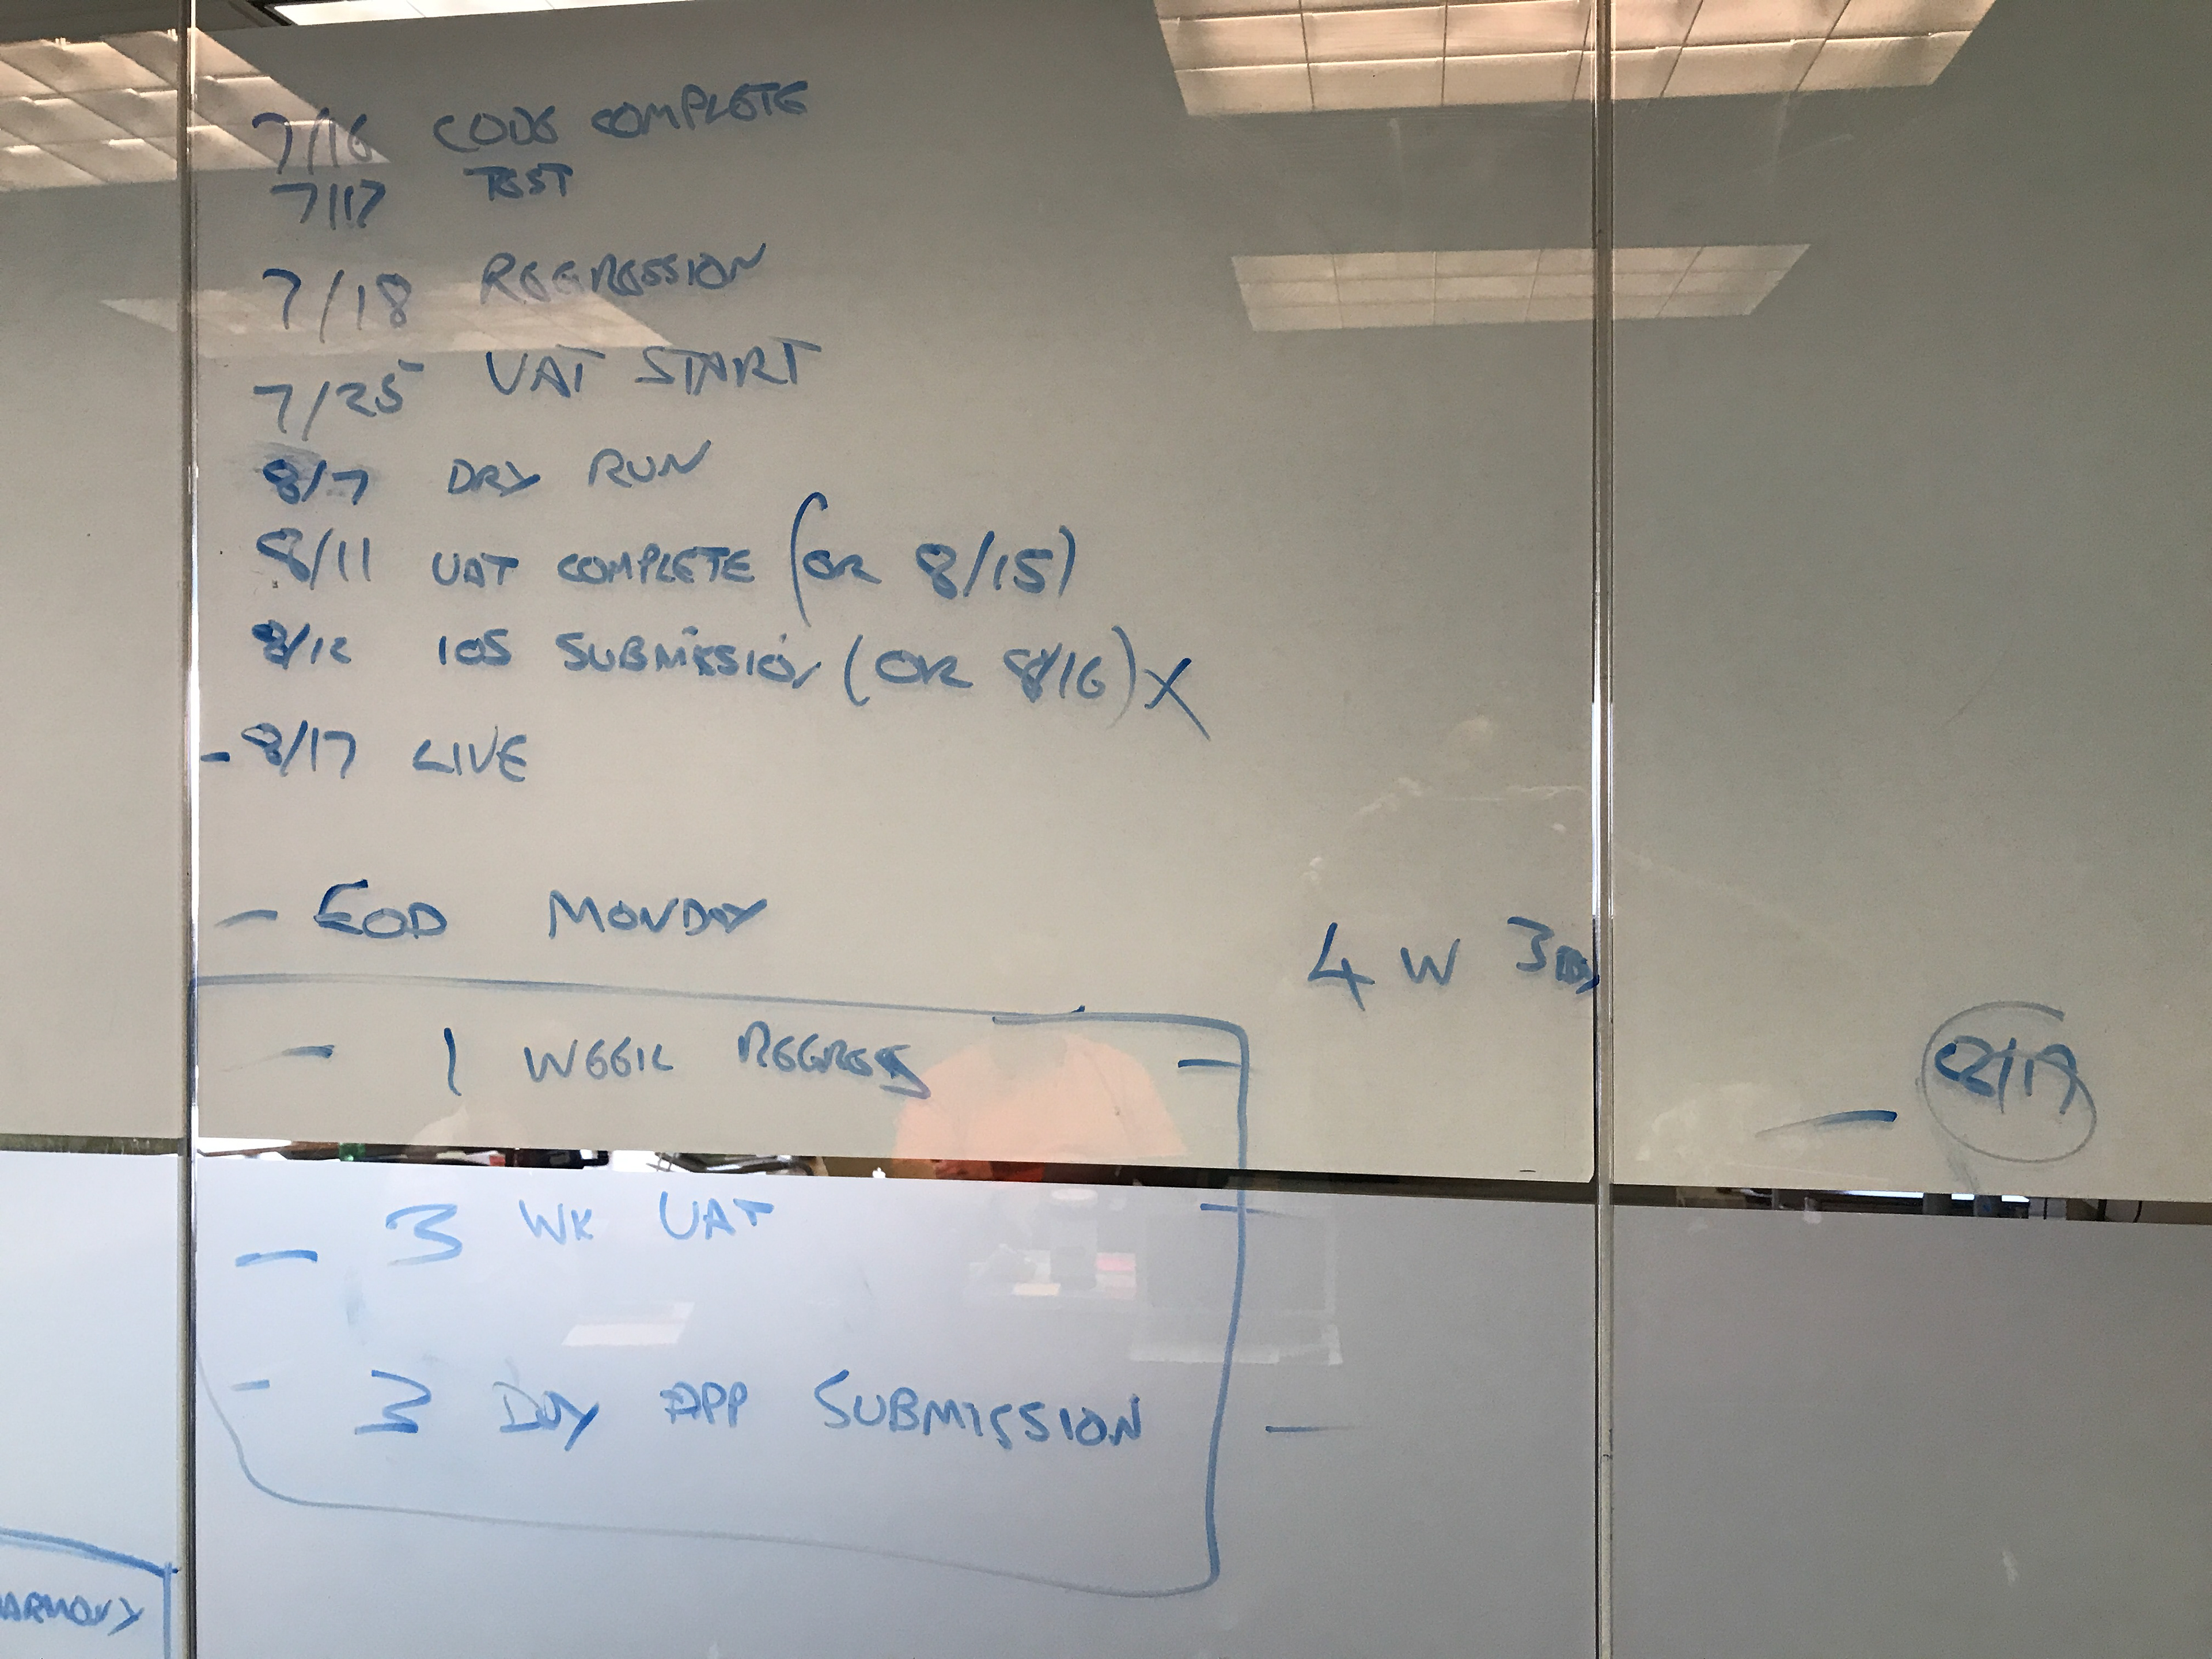 7/16 CODE COMPLETE
7/17 TEST
7/18 REGRESSION
7/25 UAT START
8/7 DRY RUN
8/11 UAT COMPLETE (OR 8/15)
8/12 IOS SUBMISSION (OR 8/16) X
- 8/17 LIVE
- EOD MONDAY
4 W 3
- 1 WEEK REGRESS -
- 8/17
- 3 WK UAT -
- 3 DAY APP SUBMISSION -
ARMONY